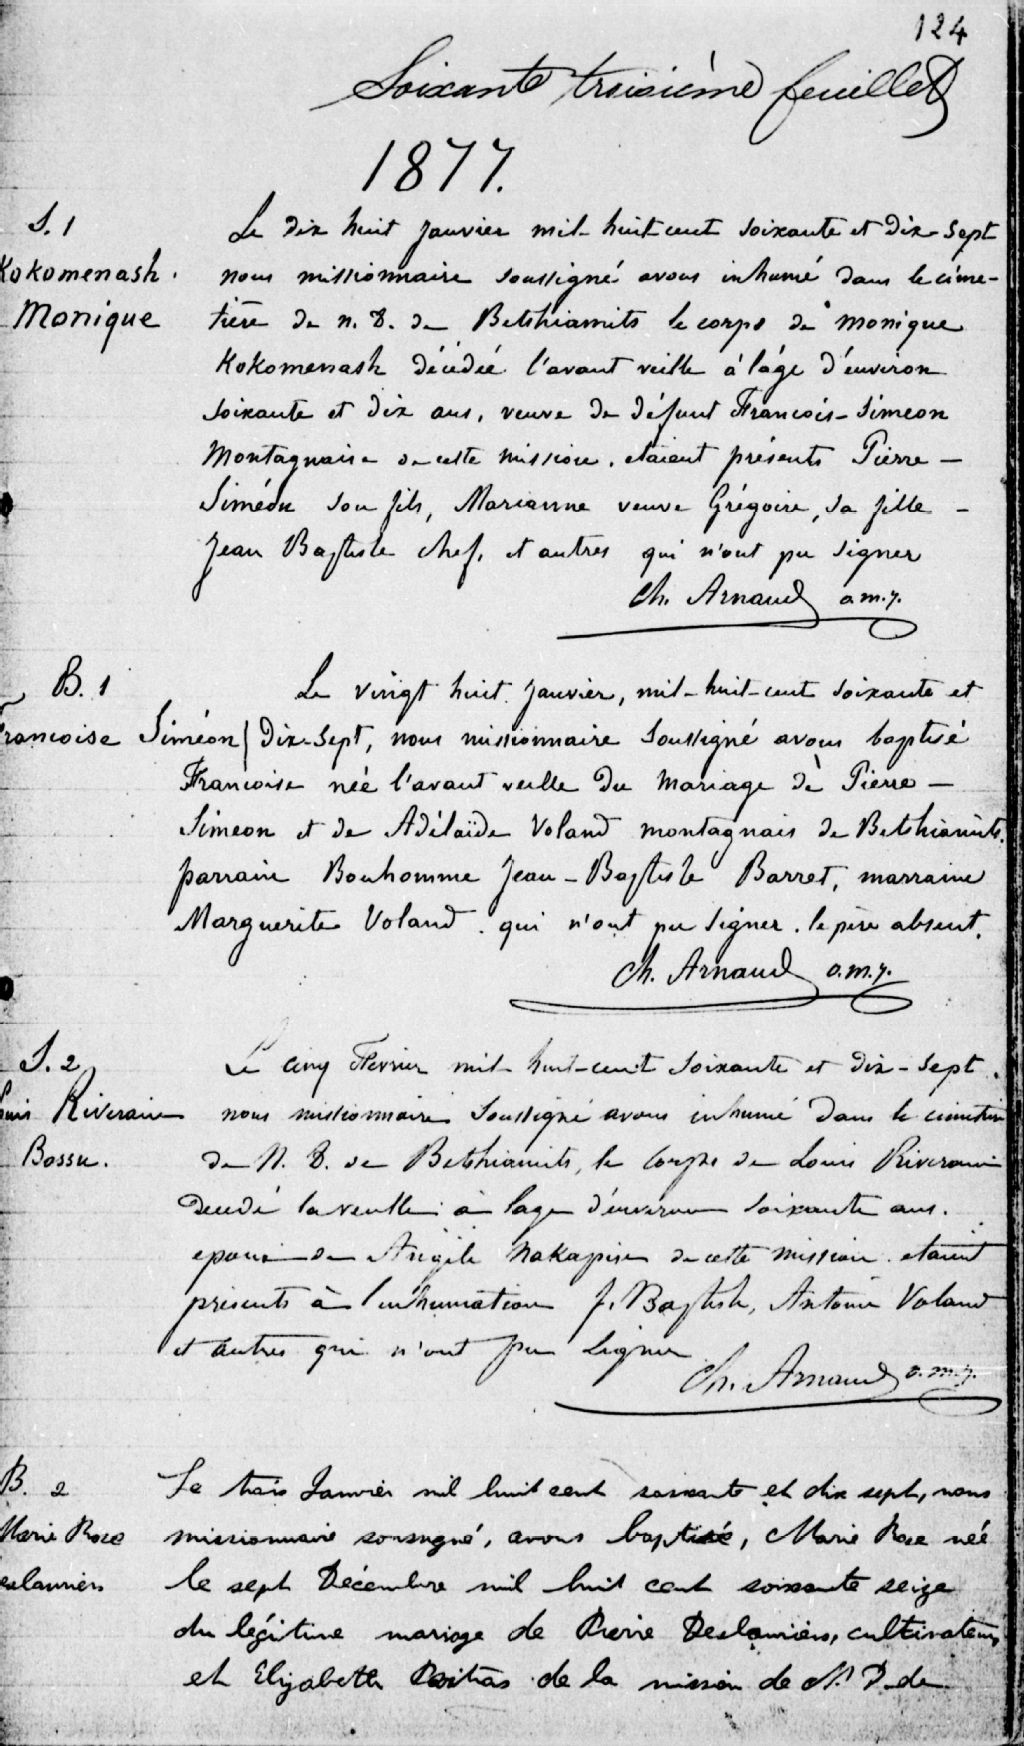 124
Soixante troisième feuillet
1877.
S. 1
Kokomenash.
Monique
Le dix huit janvier mil-huit-cent soixante et dix-sept
nous missionnaire soussigné avons inhumé dans le cime-
tière de N. D. de Betshiamits le corps de Monique
Kokomenash décédée l'avant veille à l'âge d'environ
soixante et dix ans, veuve de défunt Francois-Simeon
Montagnaise de cette mission. etaient présents Pierre-
Siméon son fils, Marianne veuve Grégoire, sa fille -
Jean Baptiste chef, et autres qui n'ont pu signer
Ch. Arnaud o.m.j.
B. 1
Francoise Siméon
Le vingt huit janvier, mil-huit-cent soixante et
dix-sept, nous missionnaire soussigné avons baptisé
Francoise née l'avant veille du mariage de Pierre-
Simeon et de Adélaïde Voland montagnais de Betshiamits.
parrain Bonhomme Jean-Baptiste Barret, marraine
Marguerite Voland. qui n'ont pu signer. le père absent.
Ch. Arnaud o.m.j.
S. 2
Louis Riverain
Bossu.
Le cinq Fevrier mil-huit-cent soixante et dix-sept.
nous missionnaire soussigné avons inhumé dans le cimetière
de N. D. de Betshiamits, le corps de Louis Riverain
decedé la veille à l'age d'environ soixante ans.
epoux de Angèle Nakapise de cette mission. etaient
présents à l'inhumation J. Baptiste, Antoine Voland
et autres qui n'ont pu signer
Ch. Arnaud o.m.j.
B. 2
Marie Rose
Deslauriers
Le trois Janvier mil huit cent soixante et dix sept, nous
missionnaire soussigné, avons baptisé, Marie Rose née
le sept Décembre mil huit cent soixante seize
du légitime mariage de Pierre Deslauriers, cultivateur
et Elizabeth de la mission de N. D. de